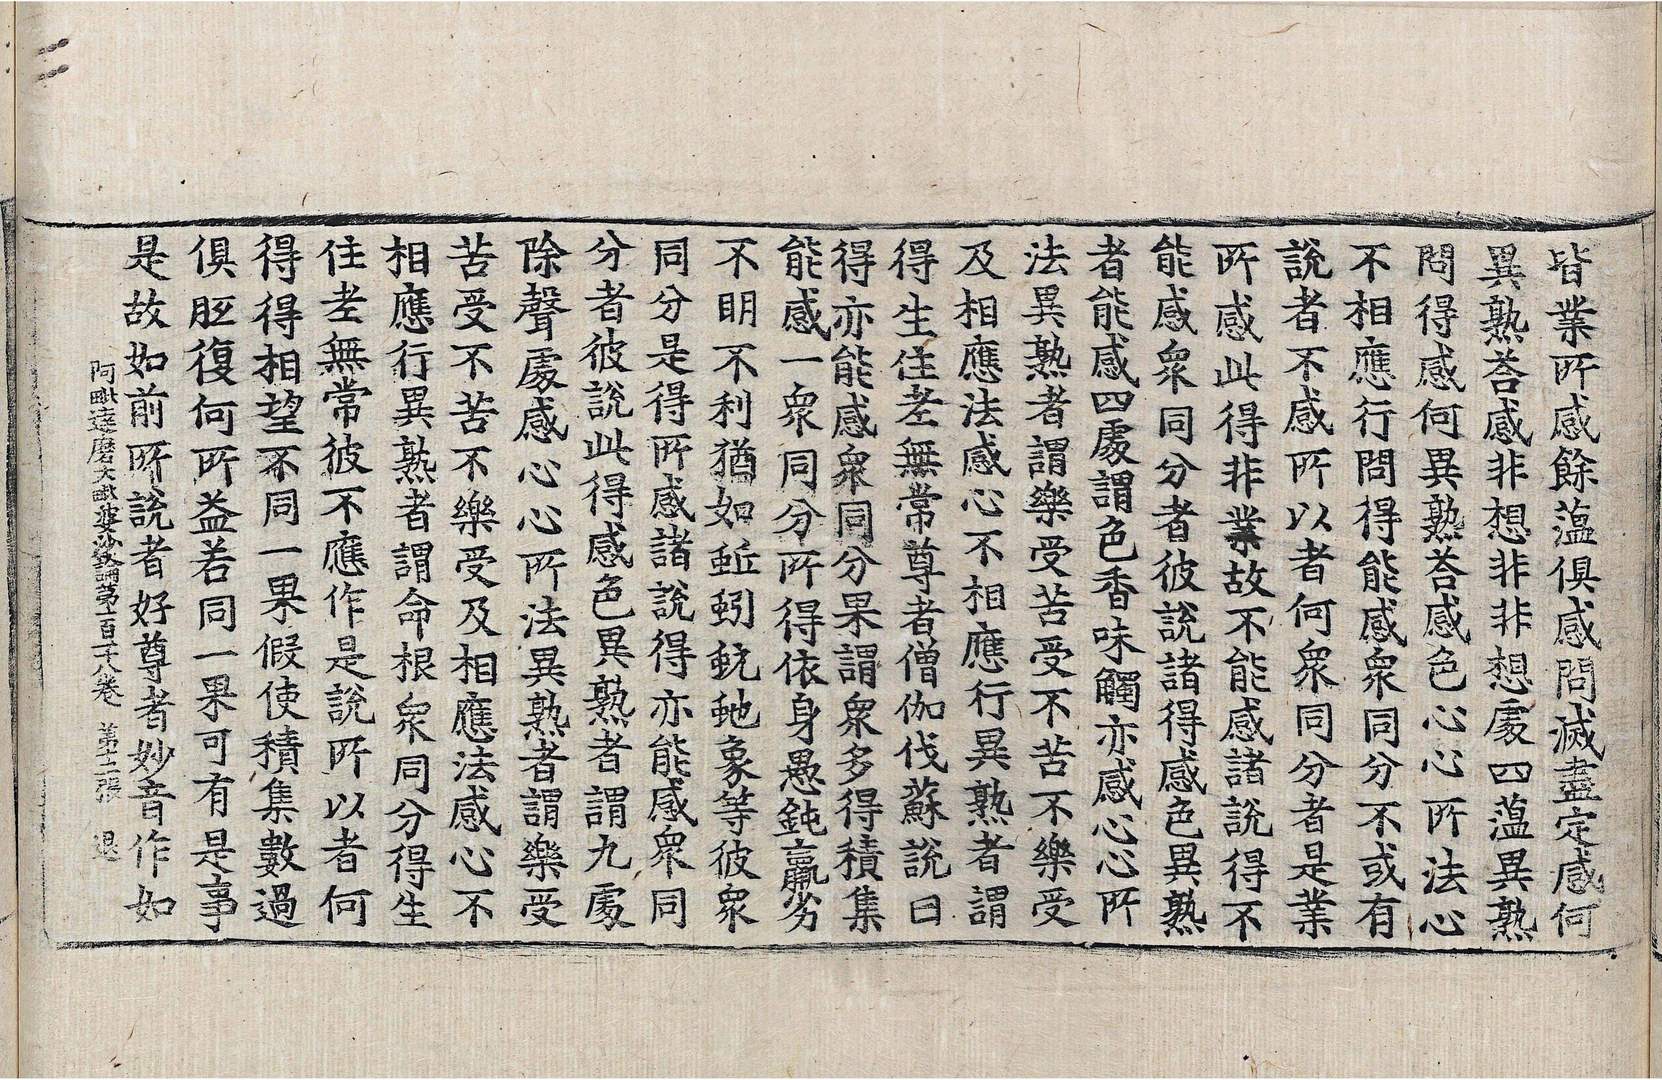 皆業所感餘薀俱感問滅盡定感何
異熟荅感非想非非想處四薀異熟
問得感何異熟荅感色心心所法心
不相應行問得能感衆同分不或有
說者不感所以者何衆同分者是業
所感此得非業故不能感諸說得不
能感衆同分者彼說諸得感色異熟
者能感四處謂色香味觸亦感心心所
法異熟者謂樂受苦受不苦不樂受
及相應法感心不相應行異熟者謂
得生住老無常尊者僧伽伐蘇說曰
得亦能感衆同分果謂衆多得積集
能感一衆同分所得依身愚鈍羸劣
不明不利猶如蚯蚓蚖虵象等彼衆
同分是得所感諸說得亦能感衆同
分者彼說此得感色異熟者謂九處
除聲處感心心所法異熟者謂樂受
苦受不苦不樂受及相應法感心不
相應行異熟者謂命根衆同分得生
住老無常彼不應作是說所以者何
得得相望不同一果假使積集數過
俱胝復何所益若同一果可有是事
是故如前所說者好尊者妙音作如
阿毗達磨大毗婆沙論第一百十八卷 第十二張 退